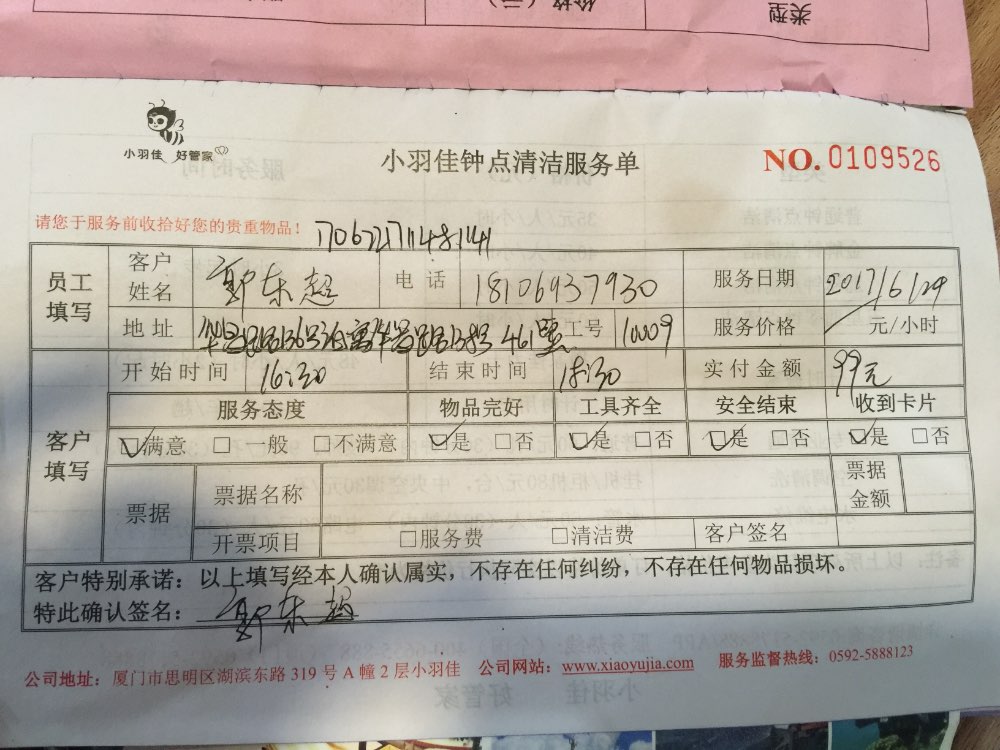 类型
价格(元)
小羽佳 好管家
小羽佳钟点清洁服务单
NO. 0109526
请您于服务前收拾好您的贵重物品!
员工填写
客户姓名 郭东超 电话 18106937930 服务日期 2017/6/29
地址 461 工号 10009 服务价格 元/小时
开始时间 16:30 结束时间 18:30 实付金额 99元
客户填写
服务态度 物品完好 工具齐全 安全结束 收到卡片
☑满意 □一般 □不满意 ☑是 □否 ☑是 □否 ☑是 □否 ☑是 □否
票据 票据名称 票据金额
开票项目 □服务费 □清洁费 客户签名
客户特别承诺:以上填写经本人确认属实,不存在任何纠纷,不存在任何物品损坏。
特此确认签名:郭东超
公司地址:厦门市思明区湖滨东路 319 号 A 幢 2 层小羽佳 公司网站:www.xiaoyujia.com 服务监督热线:0592-5888123